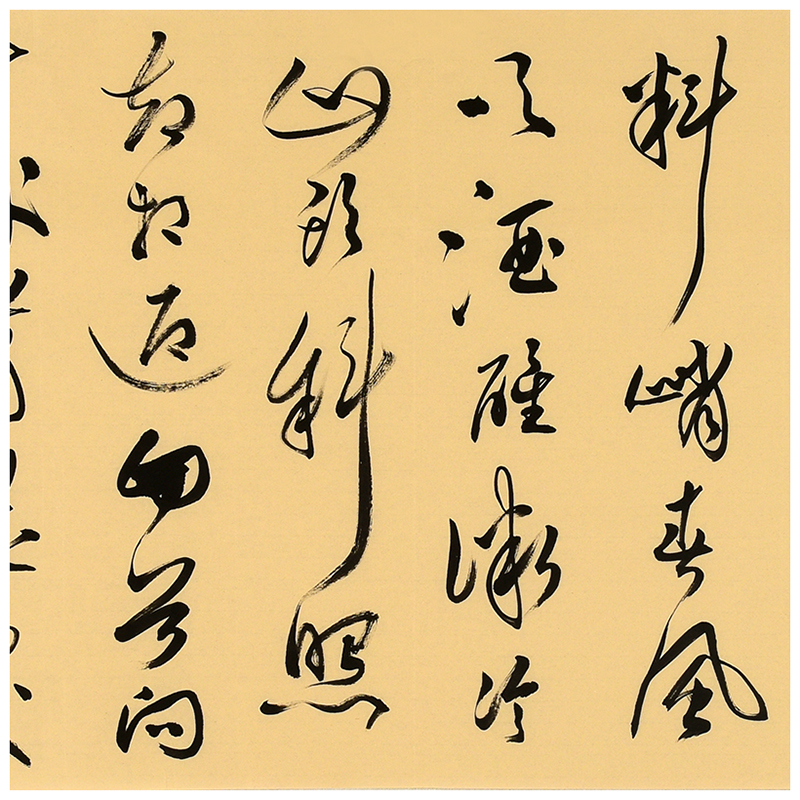 料峭春風
吹酒醒微冷
山頭斜照
却相迎回首向